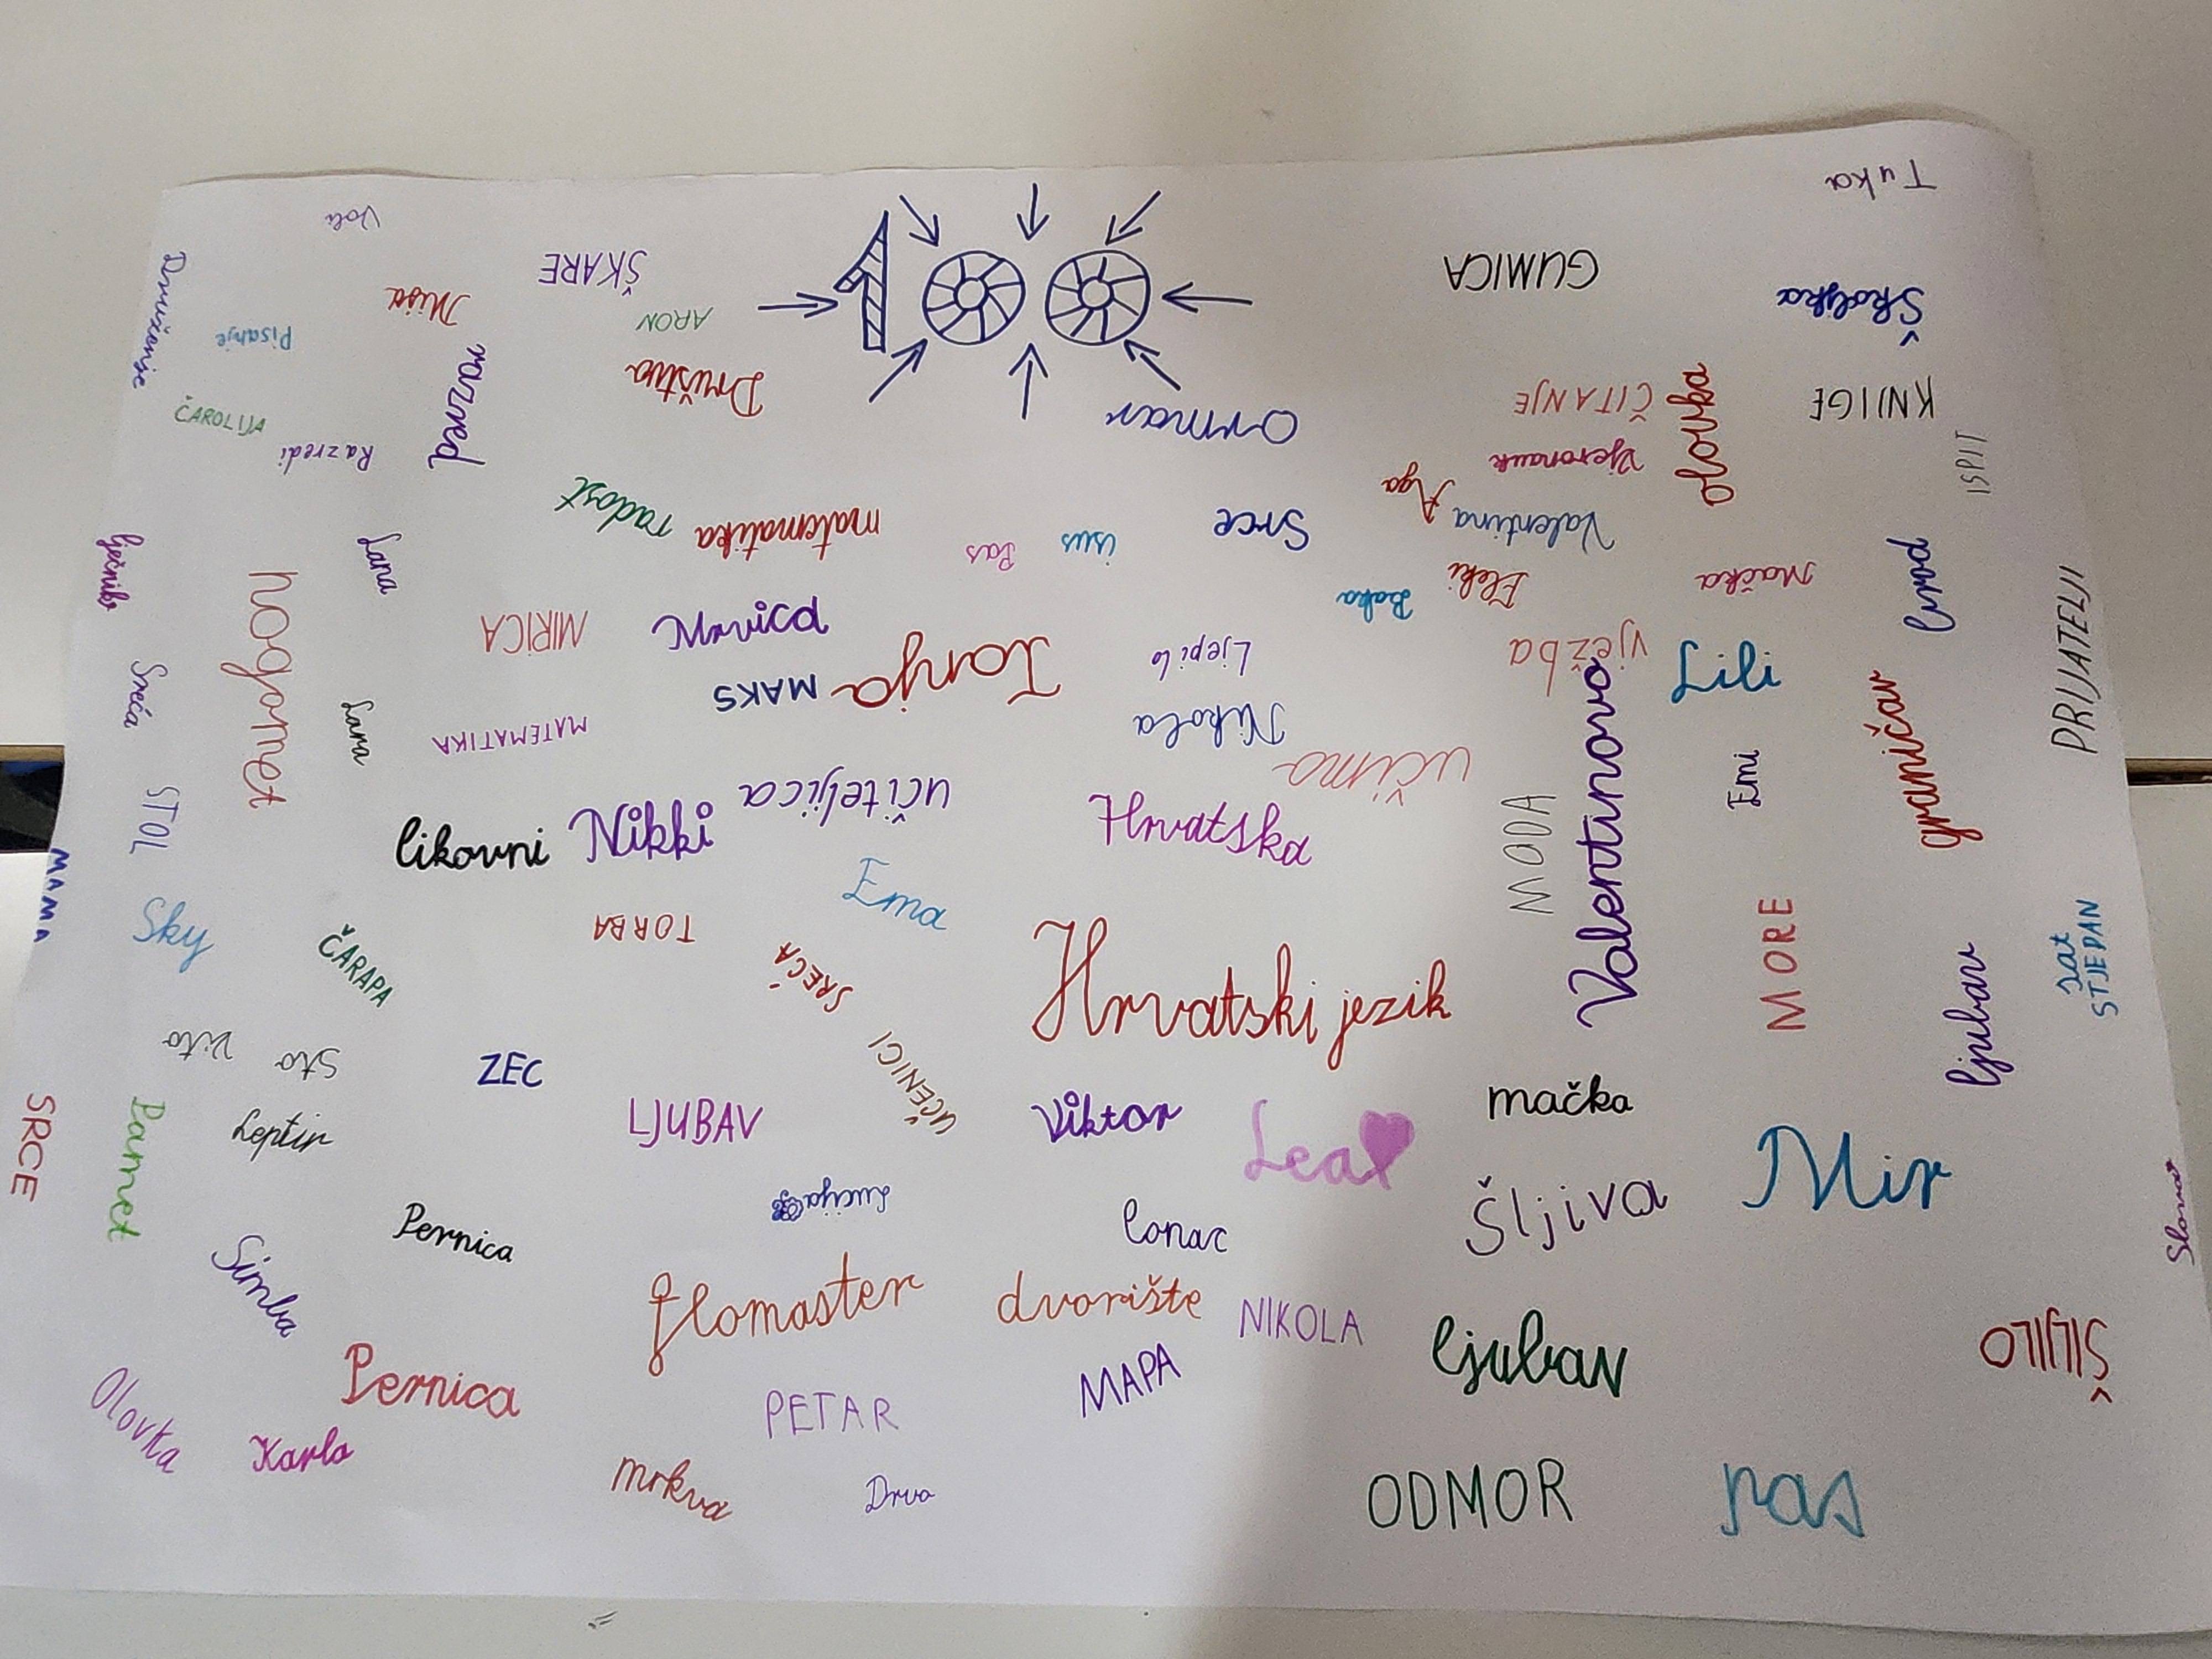 Tuka
Voli
Druženje
ŠKARE
GUMICA
Školjka
100
Misa
ARON
Pisanje
razred
Društvo
ČITANJE
olovka
KNJIGE
ČAROLIJA
ormar
Razredi
Vjeronauk
ISPIT
Aga
radost
matematika
Srce
Valentina
Pas
isus
Lana
Eleki
Mačka
Baka
nogomet
MIRICA
Mrvica
Tonja
Ljepilo
vježba
Lili
PRIJATELJI
Sreća
MAKS
Nikola
Lana
MATEMATIKA
učimo
Valentinovo
Emi
graničar
učiteljica
STOL
likovni
Nikki
Hrvatska
MODA
MAMA
Ema
Sky
TORBA
ČARAPA
SREĆA
MORE
sat
STJEPAN
Hrvatski jezik
ljubav
Vito
Sto
ZEC
UČENICI
mačka
SRCE
Pamet
Leptir
LJUBAV
Viktor
Lea
Mir
Lucija
Šljiva
Pernica
lonac
Simba
flomaster
dvorište
NIKOLA
ljubav
ŠILJILO
Pernica
MAPA
Olovka
PETAR
Karlo
mrkva
Drvo
ODMOR
pas